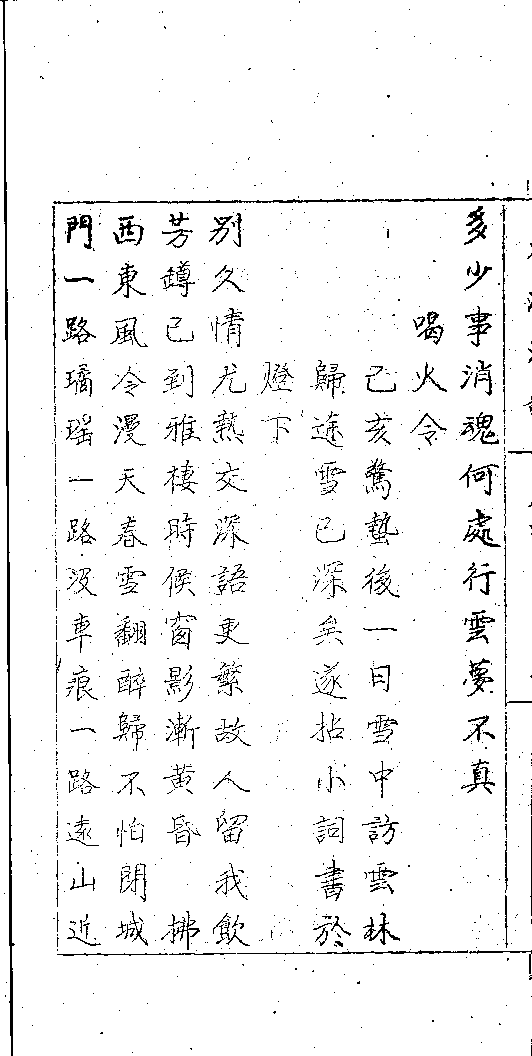 多少事消魂何處行雲夢不真
喝火令
己亥驚蟄後一日雪中訪雲林
歸途雪已深矣遂拈小詞書於
燈下
別久情尤熱交深語更繁故人留我飲
芳罇已到雅棲時候窗影漸黄昏　拂
西東風冷漫天春雪翻醉歸不怕閉城
門一路璚瑤一路没車痕一路遠山近